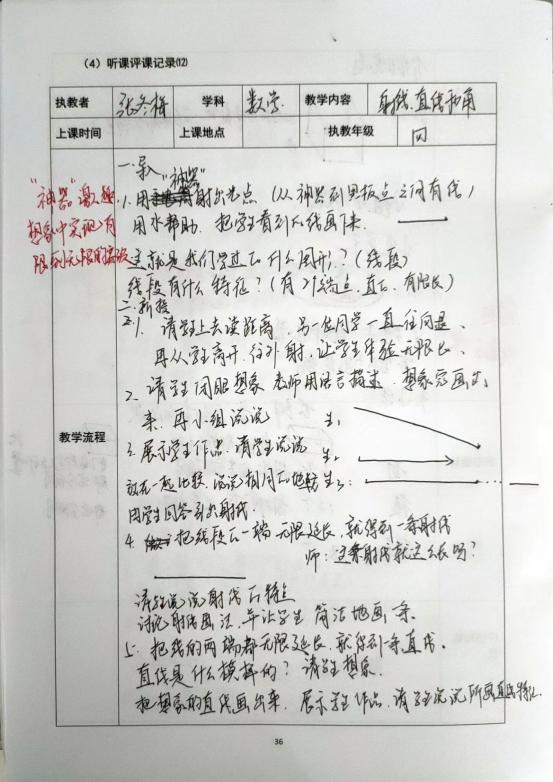 （4）听课评课记录⑿
执教者 张冬梅 学科 数学 教学内容 射线、直线和角
上课时间 上课地点 执教年级 四
"神器"激趣
想象中实现有
限到无限的
教学流程
一、导入 "神器"
1. 用射出光点（从神器到黑板点之间有线）
用水帮助、把学生看到的线画下来.
这就是我们学过的什么图形？（线段）
线段有什么特征？（有2个端点、直的、有限长）
二、新授
1. 请学生上去读距离，另一位同学一直往后退、
再从学生离开、往外射，让学生体验无限长、
2. 请学生闭眼想象 老师用语言描述、想象完画出
来、再小组说说 生1
3. 展示学生作品、请学生说说 生2
放在一起比较、说说相同的地方 生3：
由学生回答引出射线.
4. 把线段的一端无限延长，就得到一条射线
师：这条射线就这么长吗？
请学生说说射线的特点
讨论射线画法，并让学生简洁地画一条
5. 把线的两端都无限延长，就得到一条直线.
直线是什么模样的？请学生想象.
把想象的直线画出来、展示学生作品、请学生说说所画直线特征.
36